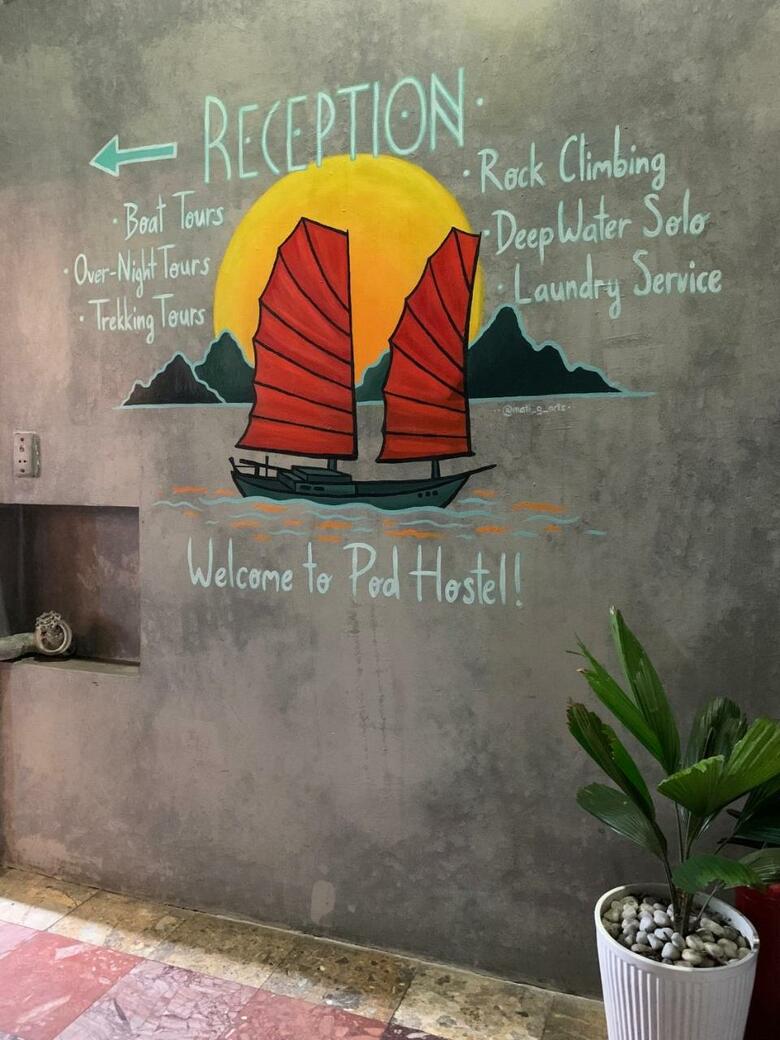 RECEPTION
· Boat Tours
· Over-Night Tours
· Trekking Tours
· Rock Climbing
· Deep Water Solo
· Laundry Service
@mati_g_arts
Welcome to Pod Hostel!